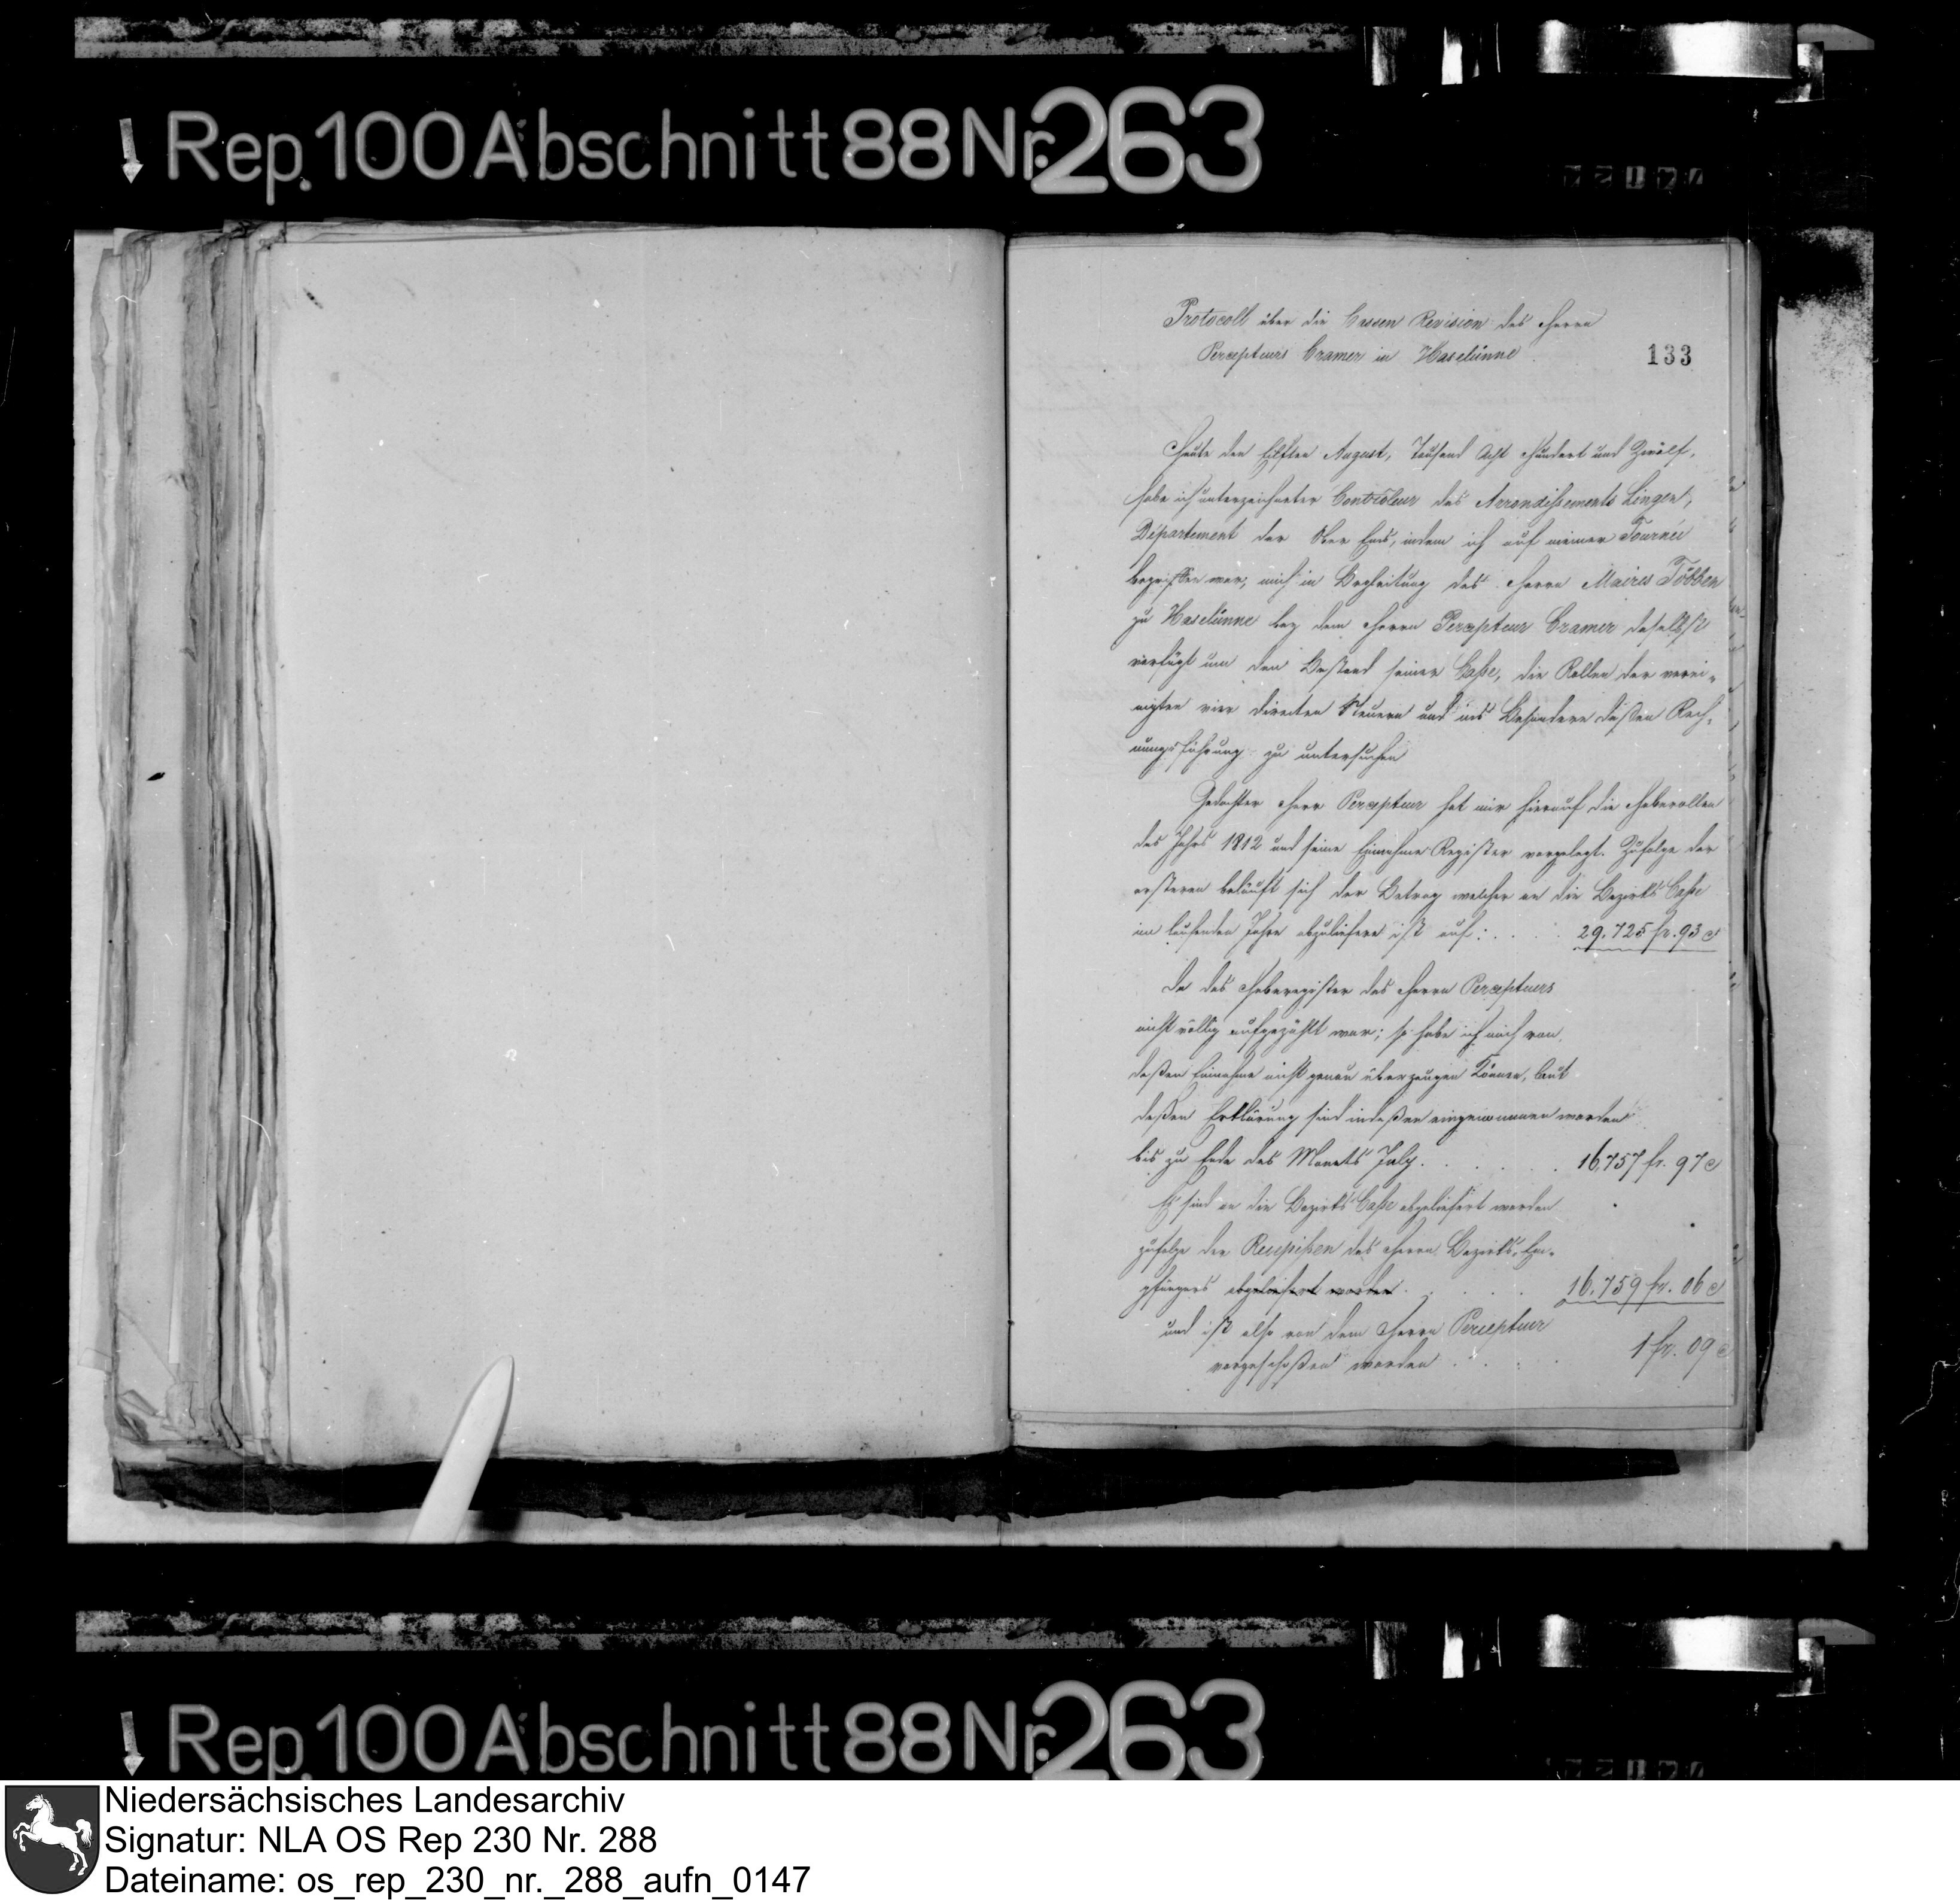 Rep. 100 Abschnitt 88 Nr. 263
Protocoll über die Cassen Revision des Herrn
Percepteurs Cramer in Haselünne
133
Heute den Eilften August, Tausend Acht Hundert und Zwölf,
habe ich unterzeichneter Controleur des Arrondissements Lingen,
Département der Ober Ems, indem ich auf meiner Tournée
begriffen war, mich in Begleitung des Herrn Maires Többen
zu Haselünne bey dem Herrn Percepteur Cramer daselbst
verfügt um den Bestand seiner Casse, die Rollen der verei-
nigten vier directen Steuern und ins Besondere dessen Rech-
nungsführung zu untersuchen
Gedachter Herr Percepteur hat mir hierauf die Heberollen
des Jahrs 1812 und seine Einnahme Register vorgelegt. Zufolge der
ersteren beläuft sich der Betrag welcher an die Bezirks Casse
im laufenden Jahre abzuliefern ist auf: . . . 29.725 fr. 93 c
Da das Heberegister des Herrn Percepteurs
nicht völlig aufgezählt war; so habe ich mich von
dessen Einnahme nicht genau überzeugen können, laut
dessen Erklärung sind indessen eingenommen worden
bis zu Ende des Monats July . . . . 16,757 fr. 97 c
Es sind an die Bezirks Casse abgeliefert worden
zufolge der Recepissen des Herrn Bezirks-Em-
pfängers abgeliefert worden . . . . 16.759 fr. 06 c
und ist also von dem Herrn Percepteur
vorgeschossen worden . . . . 1 fr. 09 c
Rep. 100 Abschnitt 88 Nr. 263
Niedersächsisches Landesarchiv
Signatur: NLA OS Rep 230 Nr. 288
Dateiname: os_rep_230_nr._288_aufn_0147